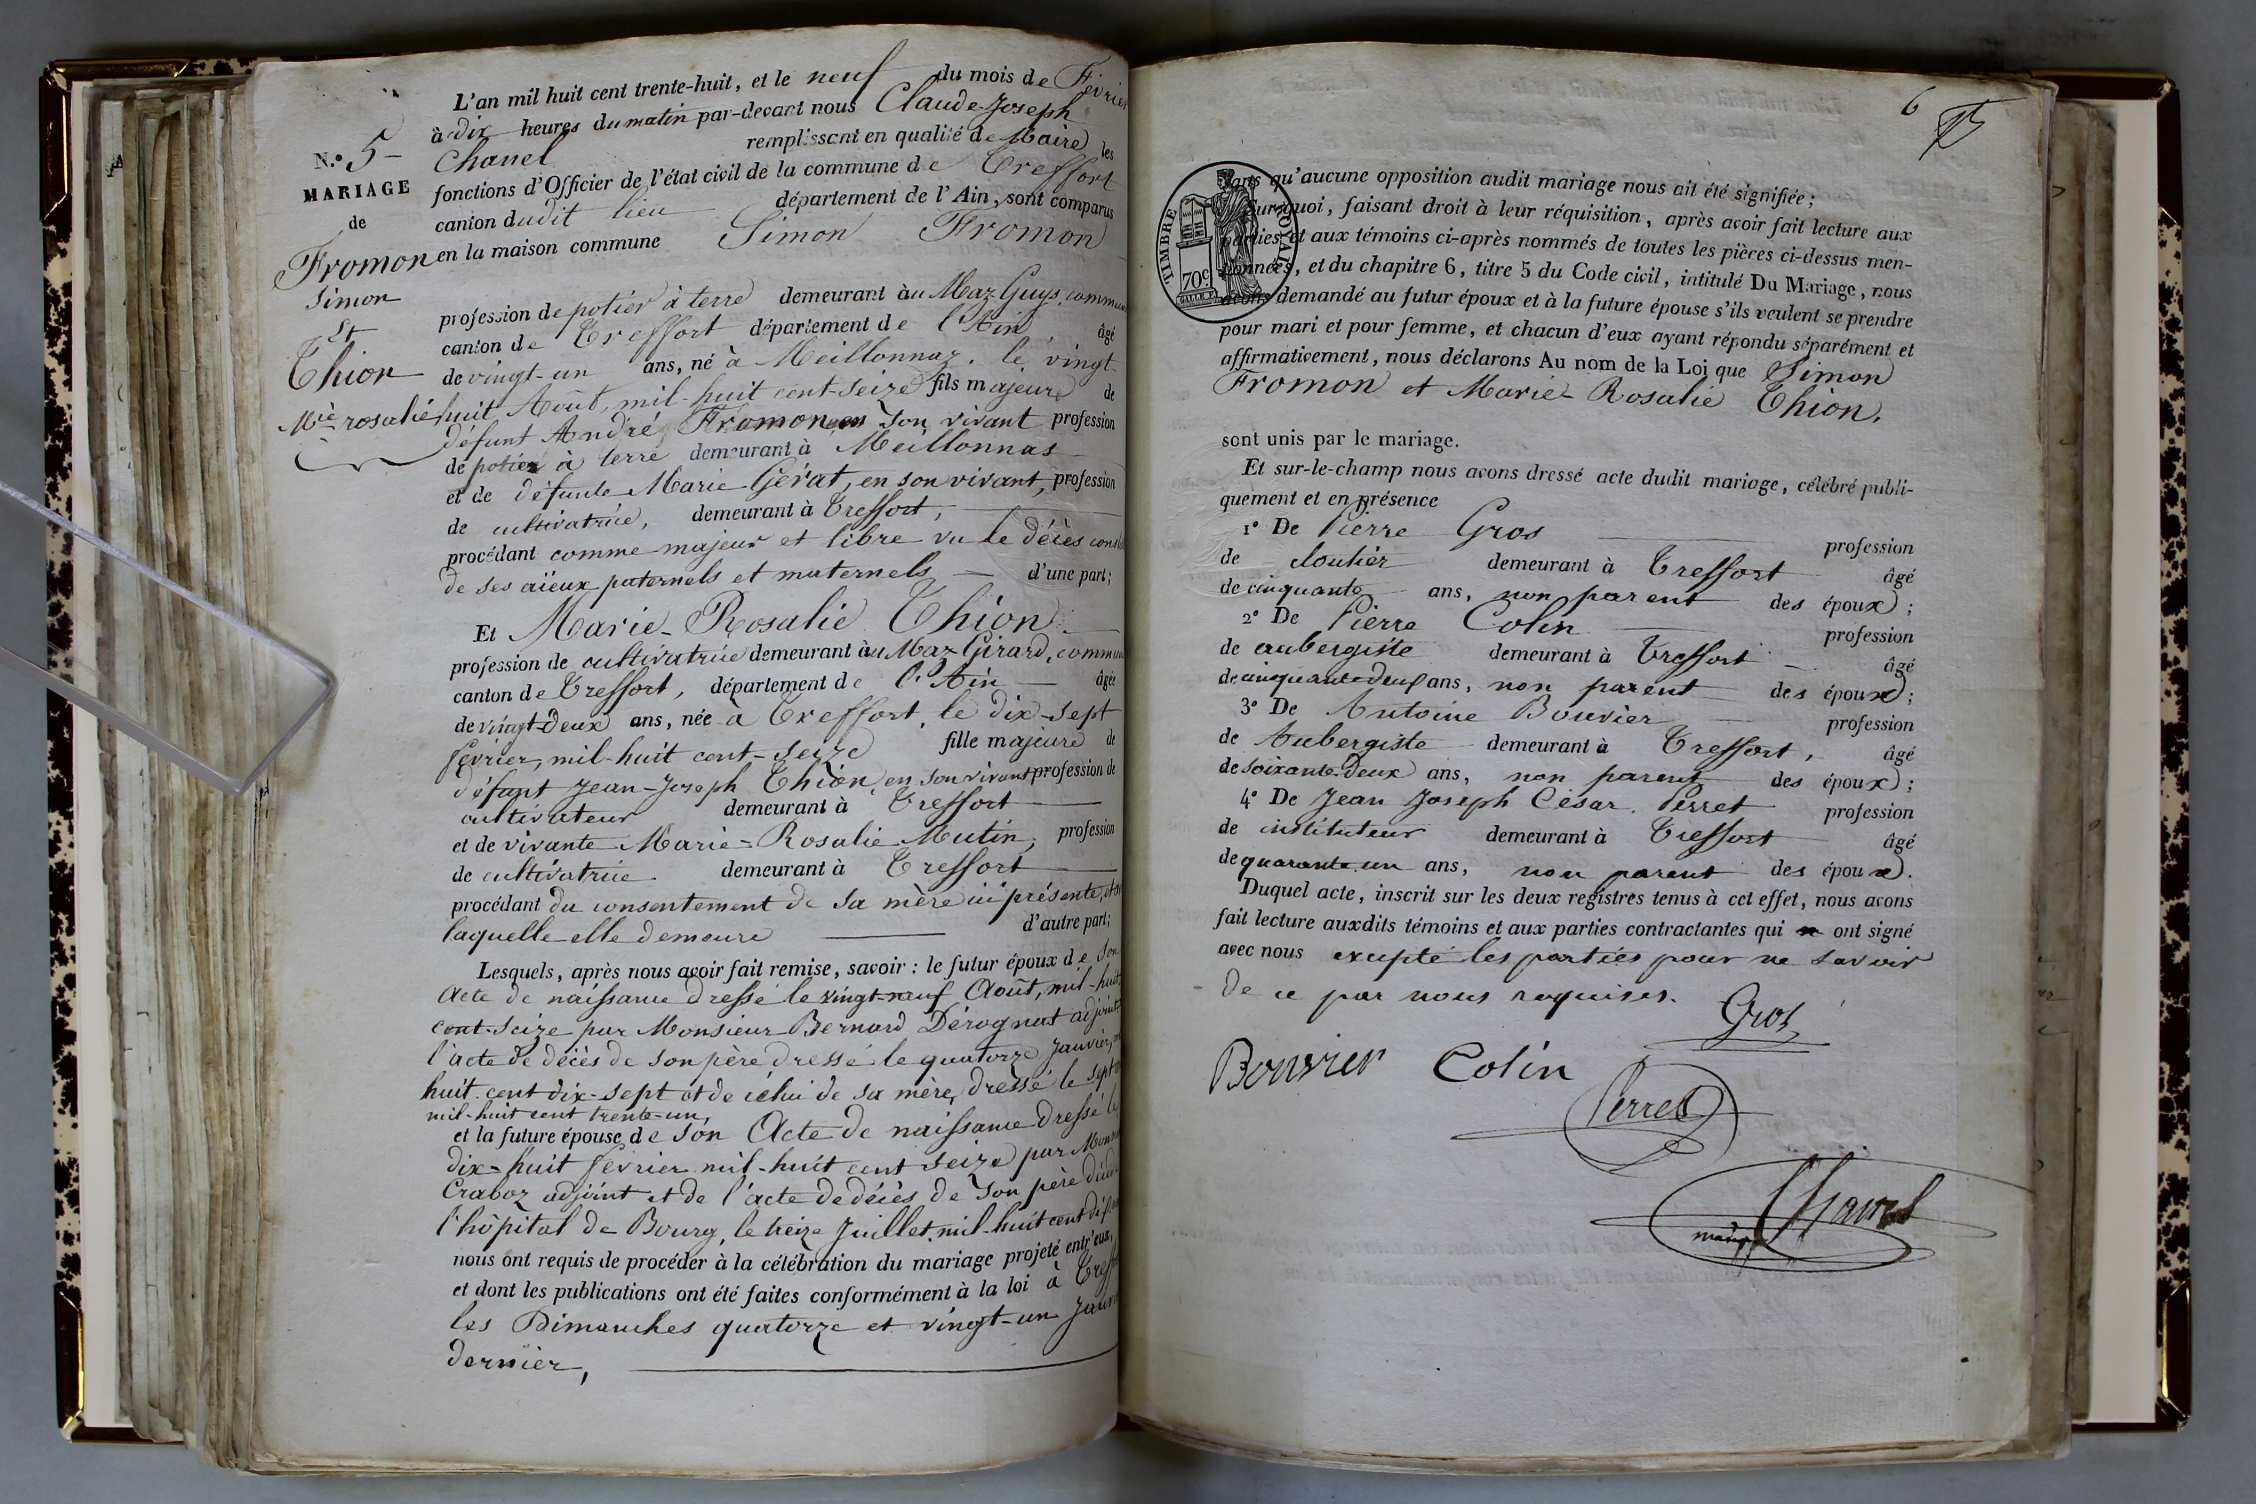 L'an mil huit cent trente-huit, et le neuf du mois de Février
à dix heures du matin par-devant nous Claude-Joseph
Chanel remplissant en qualité de Maire les
fonctions d'Officier de l'état civil de la commune de Treffort
canton dudit lieu département de l'Ain, sont comparus
en la maison commune Simon Fromon
N.º 5
MARIAGE
de
Fromon
Simon
Et
Thion
Mie rosalie
profession de potier à terre demeurant au Maz Guys, commune
canton de Treffort département de l'Ain âgé
de vingt-un ans, né à Meillonnaz, le vingt
huit Août, mil-huit cent-seize fils majeure de
défunt André Fromon en son vivant profession
de potier à terre demeurant à Meillonnas
et de défunte Marie Gérat, en son vivant, profession
de cultivatrice, demeurant à Treffort,
procédant comme majeur et libre vu le décès
de ses aïeux paternels et maternels d'une part;
Et Marie-Rosalie Thion
profession de cultivatrice demeurant au Maz Girard, commune
canton de Treffort, département de l'Ain âgée
de vingt-deux ans, née à Treffort, le dix-sept
février, mil-huit cent-seize fille majeure de
défunt Jean-Joseph Thion, en son vivant profession de
cultivateur demeurant à Treffort
et de vivante Marie-Rosalie Mutin, profession
de cultivatrice demeurant à Treffort
procédant du consentement de sa mère ici présente,
laquelle elle demeure d'autre part;
Lesquels, après nous avoir fait remise, savoir: le futur époux de son
Acte de naissance dressé le vingt-neuf Août, mil-huit
cent-seize par Monsieur Bernard Dérognat adjoint
l'acte de décès de son père dressé le quatorze Janvier,
huit cent dix-sept et de célui de sa mère, dressé le sept
mil-huit cent trente-un,
et la future épouse de son Acte de naissance dressé le
dix-huit février mil-huit cent seize par
Craboz adjoint et de l'acte de décès de son père
l'hôpital de Bourg, le treize Juillet, mil-huit cent
nous ont requis de procéder à la célébration du mariage projeté entr'eux,
et dont les publications ont été faites conformément à la loi à Treffort
les Dimanches quatorze et vingt-un Janvier
dernier,
6
TIMBRE ROYAL
70c.
sans qu'aucune opposition audit mariage nous ait été signifiée;
Surquoi, faisant droit à leur réquisition, après avoir fait lecture aux
parties et aux témoins ci-après nommés de toutes les pièces ci-dessus men-
tionnées, et du chapitre 6, titre 5 du Code civil, intitulé Du Mariage, nous
avons demandé au futur époux et à la future épouse s'ils veulent se prendre
pour mari et pour femme, et chacun d'eux ayant répondu séparément et
affirmativement, nous déclarons Au nom de la Loi que Simon
Fromon et Marie-Rosalie Thion,
sont unis par le mariage.
Et sur-le-champ nous avons dressé acte dudit mariage, célébré publi-
quement et en présence
1º De Pierre Gros profession
de cloutier demeurant à Treffort âgé
de cinquante ans, non parent des époux;
2º De Pierre Colin profession
de aubergiste demeurant à Treffort âgé
de cinquante-deux ans, non parent des époux;
3º De Antoine Bouvier profession
de Aubergiste demeurant à Treffort, âgé
de soixante-deux ans, non parent des époux;
4º De Jean Joseph César Perret profession
de instituteur demeurant à Treffort âgé
de quarante-un ans, non parent des époux.
Duquel acte, inscrit sur les deux registres tenus à cet effet, nous avons
fait lecture auxdits témoins et aux parties contractantes qui ont signé
avec nous excepté les parties pour ne savoir
de ce par nous requises.
Gros
Bouvier Colin
Perret
Chanel
maire